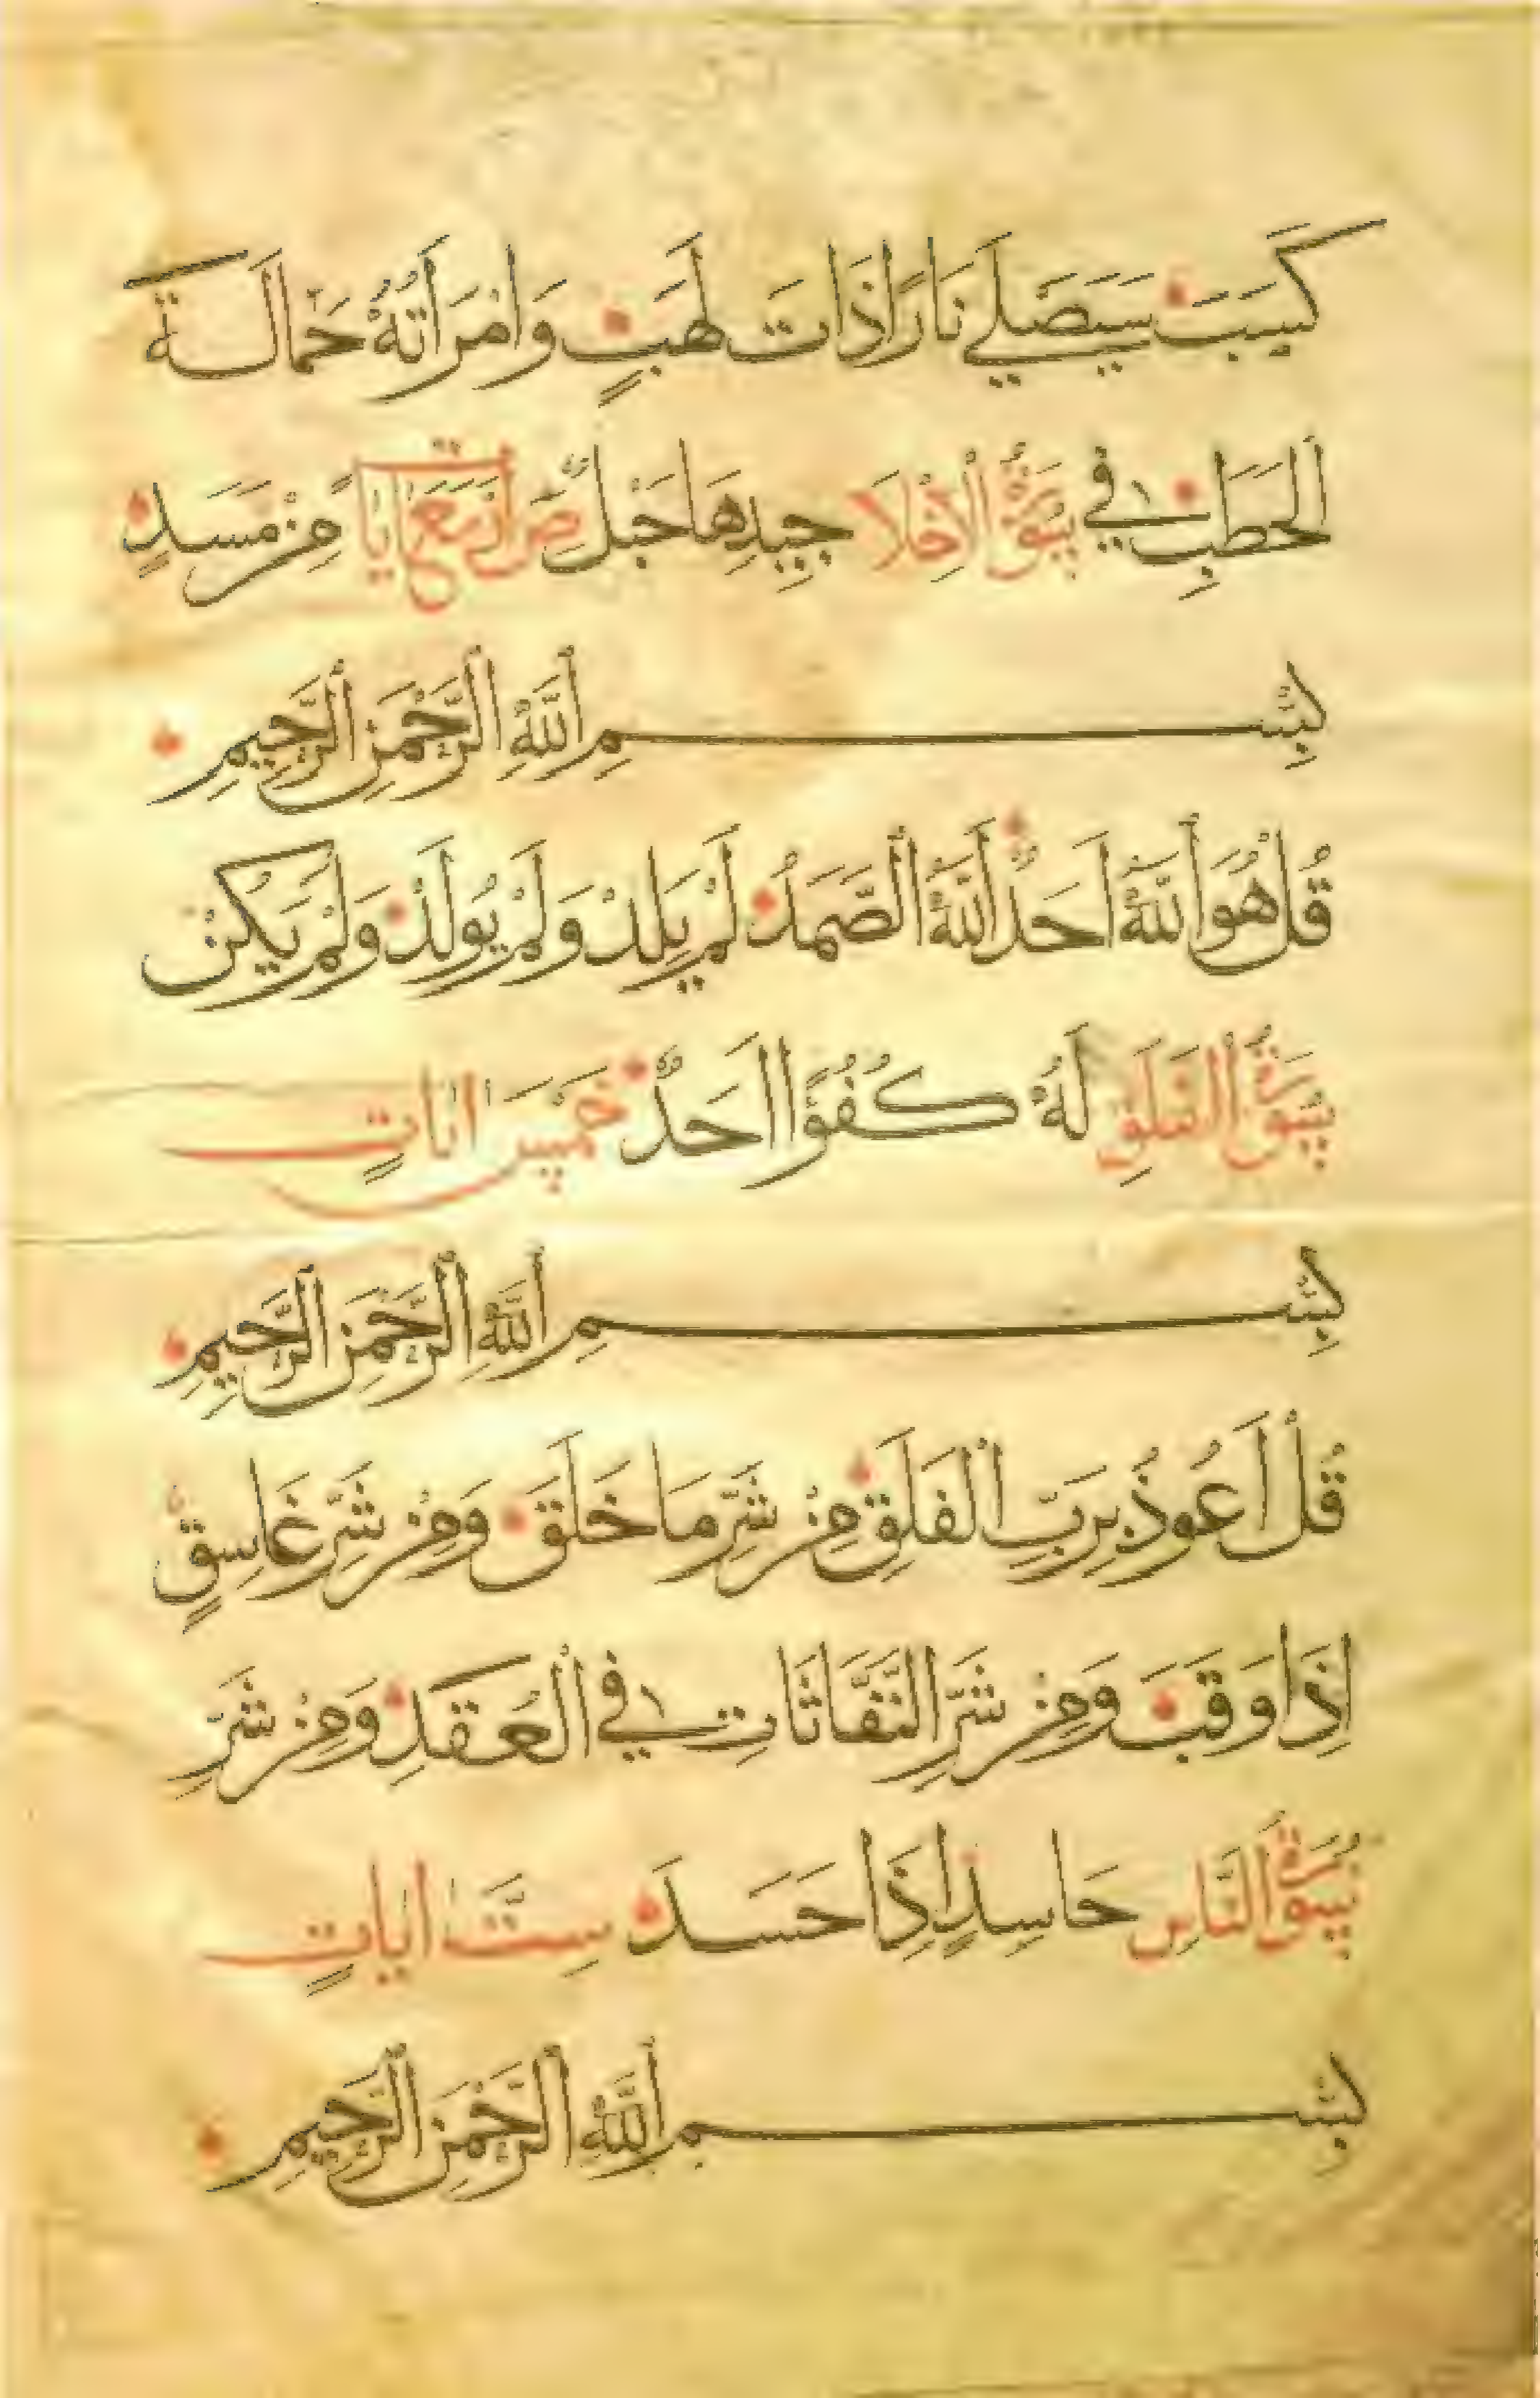 كَسَبَ سَيَصْلَى نَارًا ذَاتَ لَهَبٍ وَامْرَأَتُهُ حَمَّالَةَ
الْحَطَبِ فِي سُورَةُ الْإِخْلَا جِيدِهَا حَبْلٌ صِ أَرْبَعُ آيَاتٍ مِنْ مَسَدٍ
بِسْمِ اللَّهِ الرَّحْمَنِ الرَّحِيمِ
قُلْ هُوَ اللَّهُ أَحَدٌ اللَّهُ الصَّمَدُ لَمْ يَلِدْ وَلَمْ يُولَدْ وَلَمْ يَكُنْ
سُورَةُ الْفَلَقِ لَهُ كُفُوًا أَحَدٌ خَمْسُ آيَاتٍ
بِسْمِ اللَّهِ الرَّحْمَنِ الرَّحِيمِ
قُلْ أَعُوذُ بِرَبِّ الْفَلَقِ مِنْ شَرِّ مَا خَلَقَ وَمِنْ شَرِّ غَاسِقٍ
إِذَا وَقَبَ وَمِنْ شَرِّ النَّفَّاثَاتِ فِي الْعُقَدِ وَمِنْ شَرِّ
سُورَةُ النَّاسِ حَاسِدٍ إِذَا حَسَدَ سِتُّ آيَاتٍ
بِسْمِ اللَّهِ الرَّحْمَنِ الرَّحِيمِ